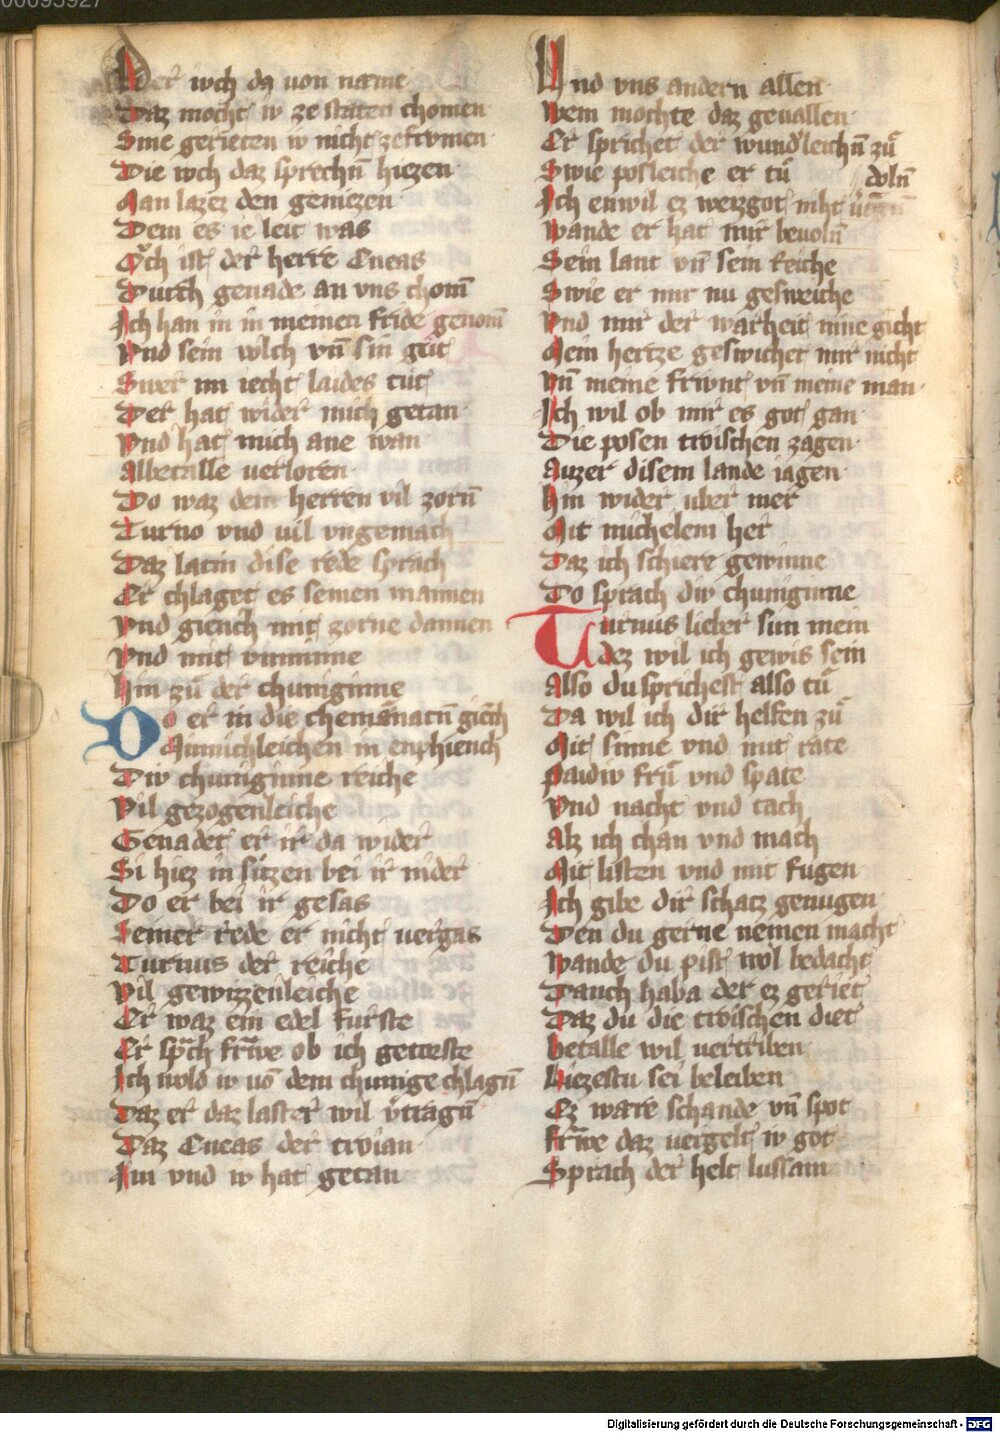 00095927
Der iuch da von name
Daz mocht iv ze staten chomen
Sine gerieten iv nicht ze frvmen
Die iuch daz sprechn̄ hiezen
Man lazez den genizen
Dem es ie leit was
Oͮch ist der herre Eneas
Durch genade an vns chom̄
Ich han in in meinen fride genom̄
Vnd sein volch vn̄ sin gůt
Swer im iecht laides tůt
Der hat wider mich getan
Vnd hat mich ane wan
Albetalle uerloren
Do waz dem herren vil zorn̄
Turno vnd uil vngemach
Daz latin dise rede sprach
Er chlaget es seinen mannen
Vnd giench mit zorne dannen
Vnd mit vnminne
Hin zů der chuniginne
Do er in die chemanatn̄ giench
Minnichleichen in enphiench
Div chuniginne reiche
Vil gezogenleiche
Genadet er ir da wider
Si hiez in sitzen bei ir nider
Do er bei ir gesas
Seiner rede er nicht uergas
Turnus der reiche
Vil gewizzenleiche
Er waz ein edel furste
Er sp̄ch frͮwe ob ich getorste
Ich wold iv vō dem chunige chlagn̄
Daz er daz laster wil v̓tragn̄
Daz Eneas der troian
Im vnd iv hat getan
Vnd vns andern allen
Wem mochte daz geuallen
Er sprichet der wund̓leichn̄ zů
Swie posleiche er tů
doln̄
Ich enwil ez weizgot niht
Wande er hat mir beuoln̄
Sein lant vn̄ sein reiche
Swie er mir nu gesweiche
Vnd mir der warheit nine gicht
Mein hertze geswichet mir nicht
Vn̄ meine frivnt vn̄ meine man
Ich wil ob mir es got gan
Die posen troischen zagen
Auzer disem lande iagen
Hin wider uber mer
Mit michelem her
Daz ich schiere gewinne
Do sprach div chuniginne
Turnus lieber sun mein
dez wil ich gewis sein
Also du sprichest also tů
Da wil ich dir helfen zů
Mit sinne vnd mit rate
paidiv frů vnd spate
Vnd nacht vnd tach
Alz ich chan vnd mach
Mit listen vnd mit fugen
Ich gibe dir schatz genugen
Den du gerne nemen macht
Wande du pist wol bedacht
Danch haba der ez geriet
Daz du die troischen diet
Betalle wil uertriben
Liezestu sei beleiben
Ez ware schande vn̄ spot
Frͮwe daz uergelt iv got
Sprach der helt lussam
Digitalisierung gefördert durch die Deutsche Forschungsgemeinschaft - DFG